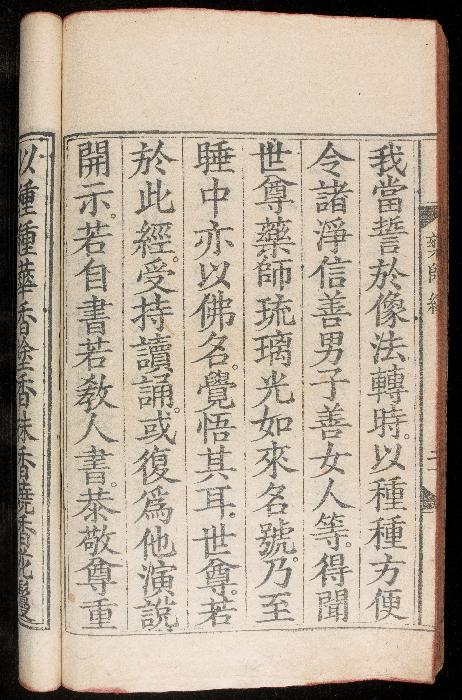 藥師經
我當誓於像法轉時。以種種方便
令諸淨信善男子善女人等。得聞
世尊藥師琉璃光如來名號。乃至
睡中亦以佛名。覺悟其耳。世尊。若
於此經。受持讀誦。或復爲他演說
開示。若自書若教人書。恭敬尊重
以種種華香塗香秣香燒香花鬘